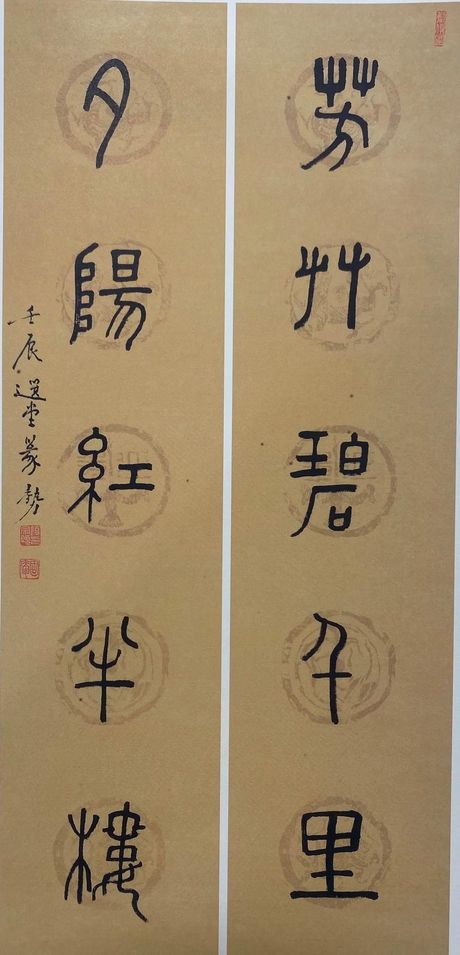 芳艸碧千里
夕陽紅半樓
壬辰選堂篆勢